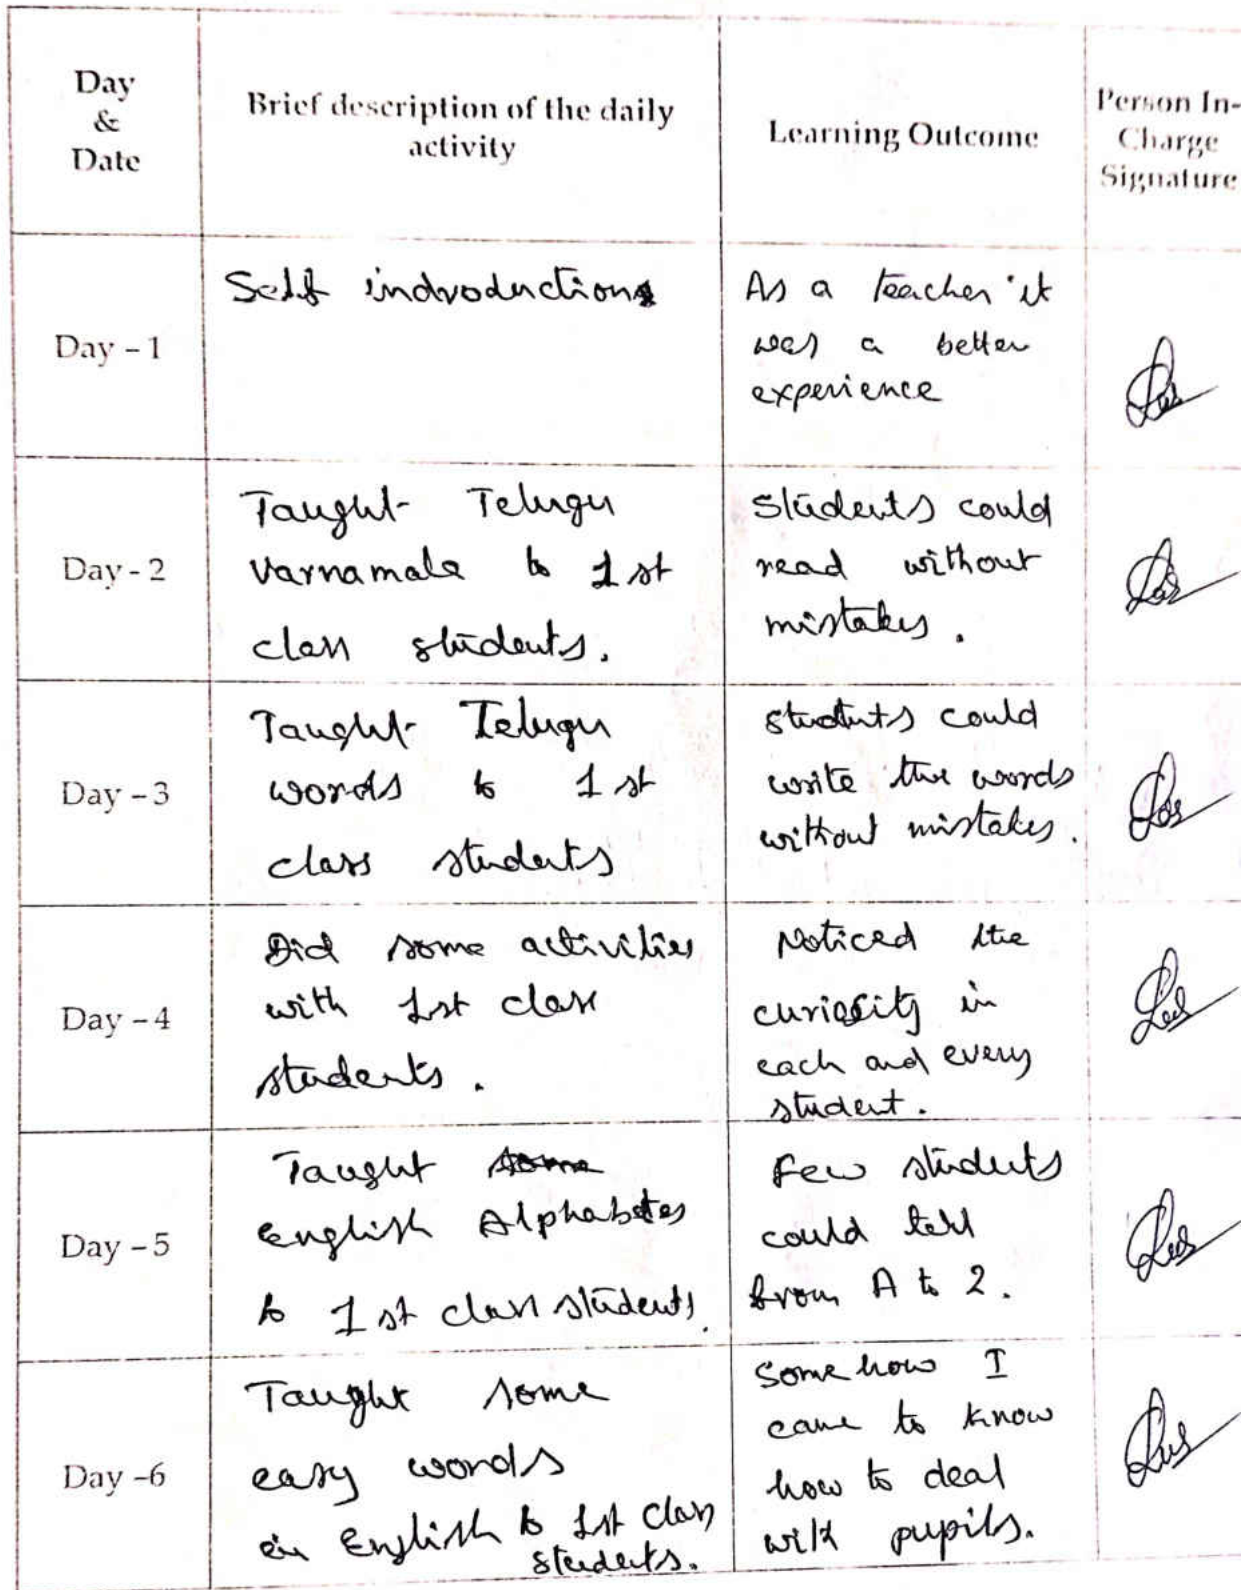 Day
&
Date
Brief description of the daily
activity
Learning Outcome
Person In-
Charge
Signature
Day - 1
Self indroductions
As a teacher it
was a better
experience
Day - 2
Taught Telugu
varnamala to 1st
class students.
Students could
read without
mistakes.
Day - 3
Taught Telugu
words to 1st
class students
students could
write the words
without mistakes.
Day - 4
Did some activities
with 1st class
students.
Noticed the
curiosity in
each and every
student.
Day - 5
Taught some
English Alphabetes
to 1st class students.
Few students
could tell
from A to Z.
Day -6
Taught some
easy words
in English to 1st class
students.
Some how I
came to know
how to deal
with pupils.